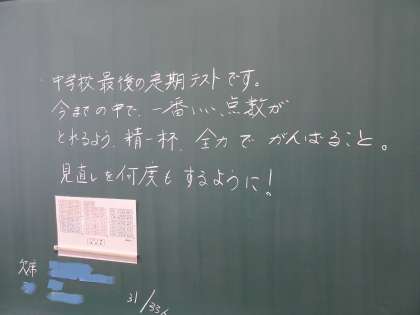 中学校最後の定期テストです。
今までの中で、一番いい点数が
とれるよう、精一杯、全力でがんばること。
見直しを何度もするように!
欠席
31/33